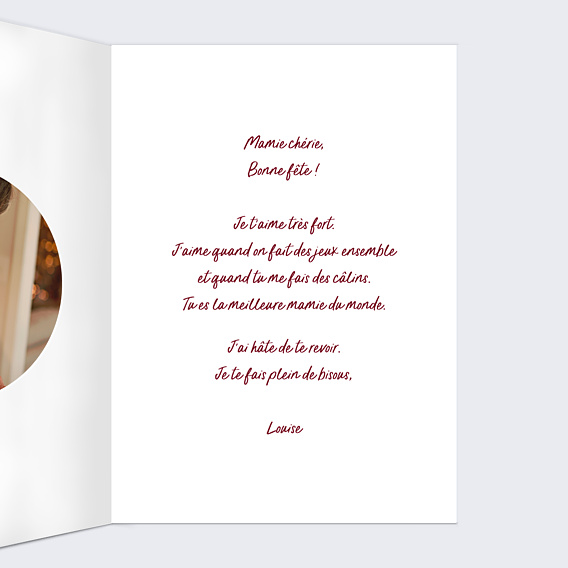 Mamie chérie,
Bonne fête !
Je t'aime très fort.
J'aime quand on fait des jeux ensemble
et quand tu me fais des câlins.
Tu es la meilleure mamie du monde.
J'ai hâte de te revoir.
Je te fais plein de bisous,
Louise